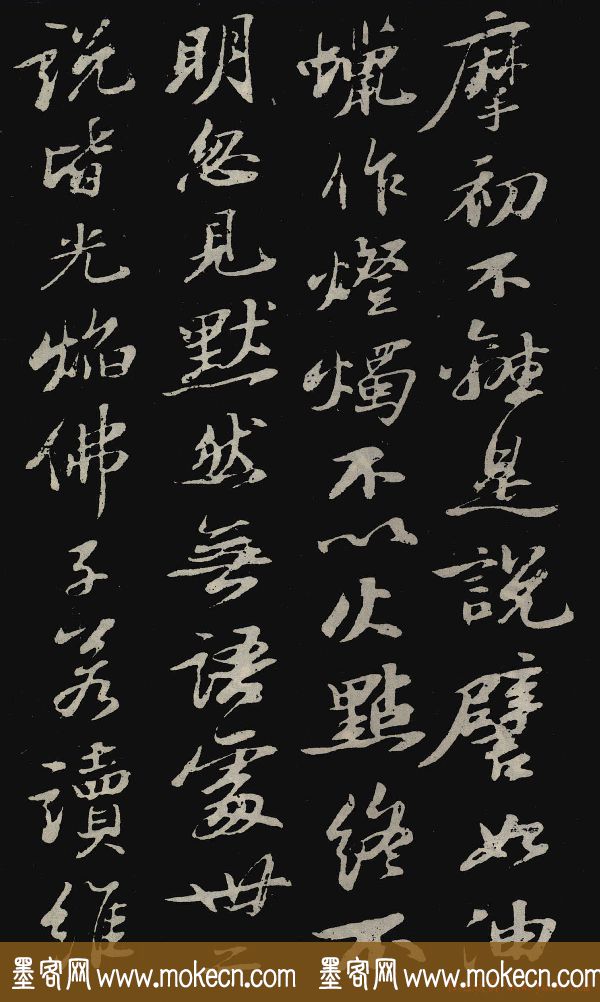 摩初不離是說譬如油
蠟作燈燭不以火點終不
明忽見默然無語處卅二
說皆光焰佛子若讀維
墨客网 www.mokecn.com 墨客网 www.mokecn.com